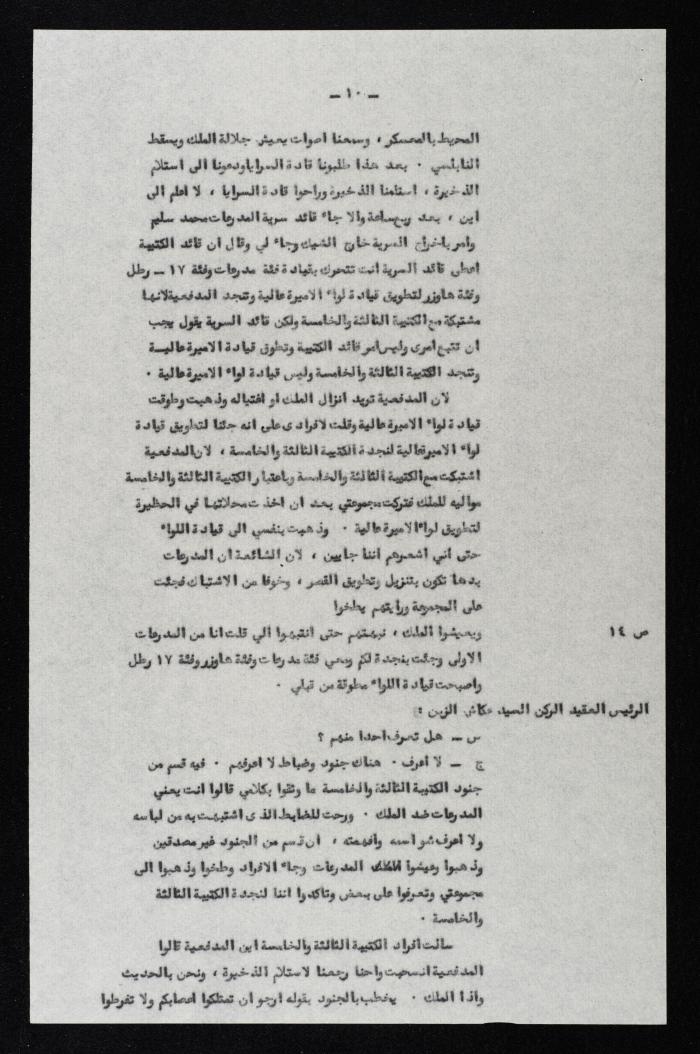 — ١٠ —
المحيط بالمعسكر ، وسمعنا اصوات يعيش جلالة الملك ويسقط
النابلسي . بعد هذا طلبونا قادة السرايا ودعونا الى استلام
الذخيرة ، استلمنا الذخيرة وراحوا قادة السرايا ، لا اعلم الى
اين ، بعد ربع ساعة والا جاء قائد سرية المدرعات محمد سليم
وامر باخراج السرية خارج الشيك وجاء لي وقال ان قائد الكتيبة
اعطى قائد السرية انت تتحرك بقيادة فئة مدرعات وفئة ١٧ – رطل
وفئة هاوزر لتطويق قيادة لواء الاميرة عالية وتنجد المدفعية لانها
مشتبكة مع الكتيبة الثالثة والخامسة ولكن قائد السرية يقول يجب
ان تتبع امرى وليس امر قائد الكتيبة وتطوق قيادة الاميرة عاليــة
وتنجد الكتيبة الثالثة والخامسة وليس قيادة لواء الاميرة عالية .
لان المدفعية تريد انزال الملك او اغتياله وذهبت وطوقت
قيادة لواء الاميرة عالية وقلت لافرادى على انه جئنا لتطويق قيادة
لواء الاميرة عالية لنجدة الكتيبة الثالثة والخامسة ، لان المدفعية
اشتبكت مع الكتيبة الثالثة والخامسة وباعتبار الكتيبة الثالثة والخامسة
مواليه للملك فتركت مجموعتي بعد ان اخذت محلاتها في الحظيرة
لتطويق لواء الاميرة عالية . وذهبت بنفسي الى قيادة اللواء
حتى أني اشعرهم أننا جايين ، لان الشائعة ان المدرعات
بدها تكون بتنزيل وتطويق القصر ، وخوفا من الاشتباك فجئت
على المجموعة ورايتهم يطخوا
ص ١٤
ويعيشوا الملك ، نبهتهم حتى انتبهوا الي قلت انا من المدرعات
الاولى وجئت بنجدة لكم ومعي فئة مدرعات وفئة هاوزر وفئة ١٧ رطل
واصبحت قيادة اللواء مطوقة من قبلي .
الرئيس العقيد الركن السيد عكاش الزبن :
س – هل تعرف احدا منهم ؟
ج – لا اعرف . هناك جنود وضباط لا اعرفهم . فيه قسم من
جنود الكتيبة الثالثة والخامسة ما وثقوا بكلامي قالوا انت يعني
المدرعات ضد الملك . ورحت للضابط الذى اشتبهت به من لباسه
ولا اعرف شو اسمه وافهمته ، ان قسم من الجنود غير مصدقين
وذهبوا وعيشوا الملك المدرعات وجاء الافراد وطخوا وذهبوا الى
مجموعتي وتعرفوا على بعض وتاكدوا اننا لنجدة الكتيبة الثالثة
والخامسة .
سالت افراد الكتيبة الثالثة والخامسة اين المدفعية قالوا
المدفعية انسحبت واحنا رجعنا لاستلام الذخيرة ، ونحن بالحديث
واذا الملك . يخطب بالجنود بقوله ارجو ان تمتلكوا اعصابكم ولا تفرطوا